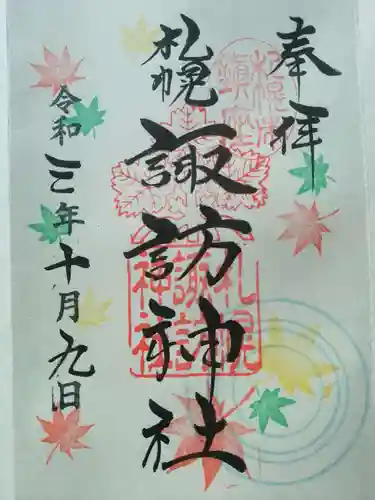 奉拝
札幌
諏訪神社
令和三年十月九日
札幌
諏訪
神社